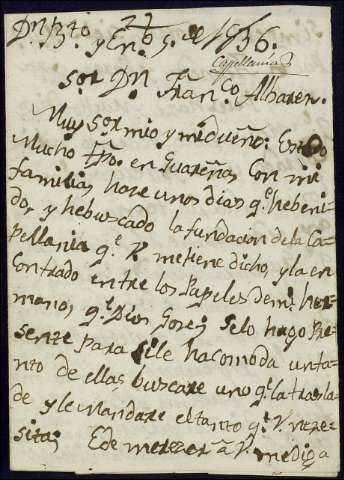 Dn Bto y En.o 5. de 1736.
Capellania
Sor. Dn. Franco. Albaren.
Muy sor mio y mi dueño: Estado
Mucho tpo. en Guareña Con mi
familia, hare unos dias q.e he beni
do, y he buscado la fundacion de la Ca
pellania q.e V. me tiene dicho, y la en
Contrado entre los Papeles de mi her
mano, q.e Dios Goze, se lo hago Pre
sente para si le hacomoda un ta
nto de ellas buscare uno q.e la trasla
de y le mandare el tanto q.e V. nece
sita; E de merezer a V. me diga